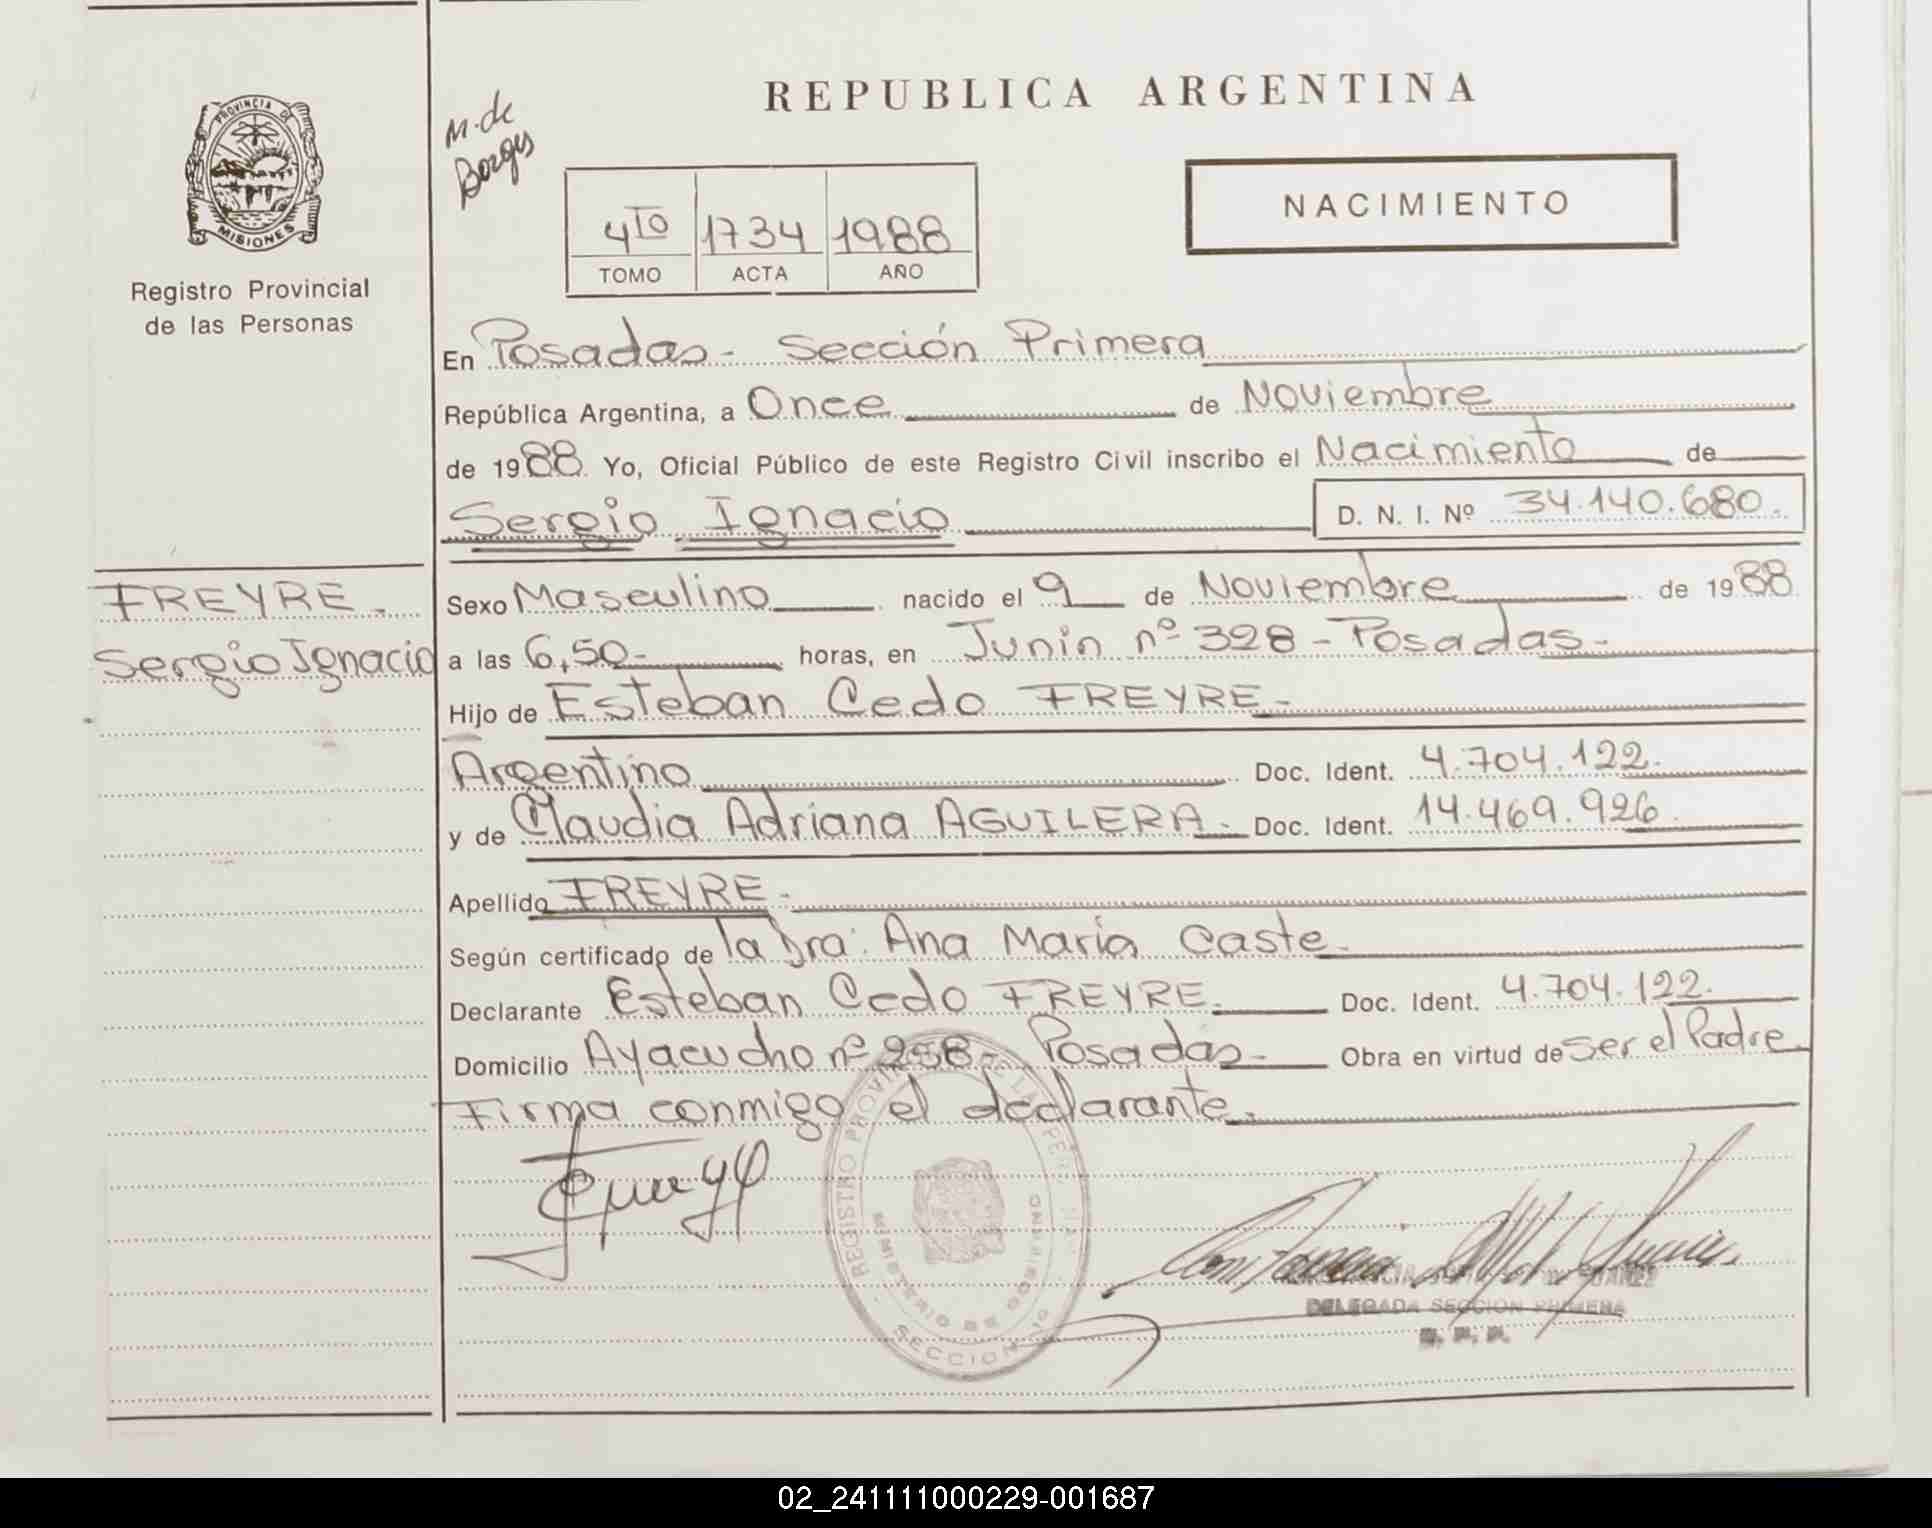 PROVINCIA DE
MISIONES
Registro Provincial
de las Personas
FREYRE.
Sergio Ignacio
M. de
Borges
REPUBLICA ARGENTINA
4TO 1734 1988
TOMO ACTA AÑO
NACIMIENTO
En Posadas - Sección Primera
República Argentina, a Once de Noviembre
de 1988. Yo, Oficial Público de este Registro Civil inscribo el Nacimiento de
Sergio Ignacio D. N. I. Nº 34.140.680.
Sexo Masculino nacido el 9 de Noviembre de 1988
a las 6,50- horas, en Junin nº 328 - Posadas-
Hijo de Esteban Cedo FREYRE-
Argentino Doc. Ident. 4.704.122.
y de Claudia Adriana AGUILERA- Doc. Ident. 14.469.926.
Apellido FREYRE-
Según certificado de la Dra: Ana María Caste-
Declarante Esteban Cedo FREYRE. Doc. Ident. 4.704.122.
Domicilio Ayacucho nº 258- Posadas- Obra en virtud de Ser el Padre.
Firma conmigo el declarante.
REGISTRO PROVINCIAL DE LAS PERSONAS
MINISTERIO DE GOBIERNO
SECCION 1º
DELEGADA SECCION PRIMERA
R. P. P.
02_241111000229-001687